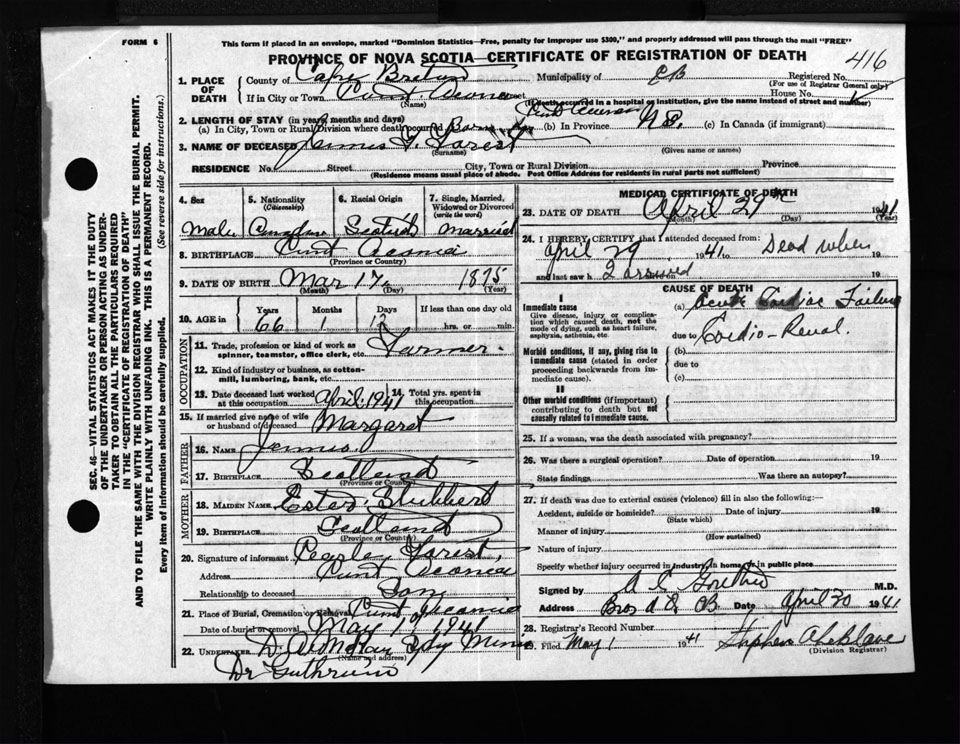 FORM 6
This form if placed in an envelope, marked "Dominion Statistics—Free, penalty for improper use $300," and properly addressed will pass through the mail "FREE"
PROVINCE OF NOVA SCOTIA—CERTIFICATE OF REGISTRATION OF DEATH
416
SEC. 46—VITAL STATISTICS ACT MAKES IT THE DUTY
OF THE UNDERTAKER OR PERSON ACTING AS UNDER-
TAKER TO OBTAIN ALL THE PARTICULARS REQUIRED
IN THE "CERTIFICATE OF REGISTRATION OF DEATH"
AND TO FILE THE SAME WITH THE DIVISION REGISTRAR WHO SHALL ISSUE THE BURIAL PERMIT.
WRITE PLAINLY WITH UNFADING INK. THIS IS A PERMANENT RECORD.
Every item of information should be carefully supplied. (See reverse side for instructions.)
1. PLACE OF DEATH
County of Cape Breton Municipality of C B Registered No.
(For use of Registrar General only)
If in City or Town Point Aconi House No.
(Name) (If death occurred in a hospital or institution, give the name instead of street and number)
2. LENGTH OF STAY (in years, months and days)
(a) In City, Town or Rural Division where death occurred Born (b) In Province N.S. (c) In Canada (if immigrant)
3. NAME OF DECEASED James Forest
(Surname) (Given name or names)
RESIDENCE No. Street City, Town or Rural Division Province
(Residence means usual place of abode. Post Office Address for residents in rural parts not sufficient)
4. Sex
Male
5. Nationality (Citizenship)
Canadian
6. Racial Origin
Scotish
7. Single, Married, Widowed or Divorced (write the word)
Married
8. BIRTHPLACE
(Province or Country)
9. DATE OF BIRTH Mar 17 1875
(Month) (Day) (Year)
10. AGE in Years Months Days If less than one day old
66 1 12 hrs. or min.
OCCUPATION
11. Trade, profession or kind of work as spinner, teamster, office clerk, etc. Farmer
12. Kind of industry or business, as cotton-mill, lumbering, bank, etc.
13. Date deceased last worked at this occupation April 1941
14. Total yrs. spent in this occupation
15. If married give name of wife or husband of deceased Margaret
FATHER
16. NAME James
17. BIRTHPLACE Scotland
(Province or Country)
MOTHER
18. MAIDEN NAME Ester Stubbert
19. BIRTHPLACE Scotland
(Province or Country)
20. Signature of informant Pearle Forest
Address
Relationship to deceased Son
21. Place of Burial, Cremation or Removal
Date of burial or removal May 1 1941
22. UNDERTAKER D. A. McKay Sydney Mines
(Name and address)
MEDICAL CERTIFICATE OF DEATH
23. DATE OF DEATH April 29th 1941
(Month) (Day) (Year)
24. I HEREBY CERTIFY that I attended deceased from:
April 29 1941 to Dead when
and last saw h I arrived
CAUSE OF DEATH
I
Immediate cause
Give disease, injury or complication which caused death, not the mode of dying, such as heart failure, asphyxia, asthenia, etc.
(a) Acute Cardiac Failure
due to Cardio-Renal.
Morbid conditions, if any, giving rise to immediate cause (stated in order proceeding backwards from immediate cause).
(b)
due to
(c)
II
Other morbid conditions (if important) contributing to death but not causally related to immediate cause.
25. If a woman, was the death associated with pregnancy?
26. Was there a surgical operation? Date of operation 19
State findings Was there an autopsy?
27. If death was due to external causes (violence) fill in also the following:—
Accident, suicide or homicide? Date of injury 19
(State which)
Manner of injury
(How sustained)
Nature of injury
Specify whether injury occurred in industry, in home, or in public place
Signed by M.D.
Address Date April 30 1941
28. Registrar's Record Number
29. Filed May 1 1941
(Division Registrar)